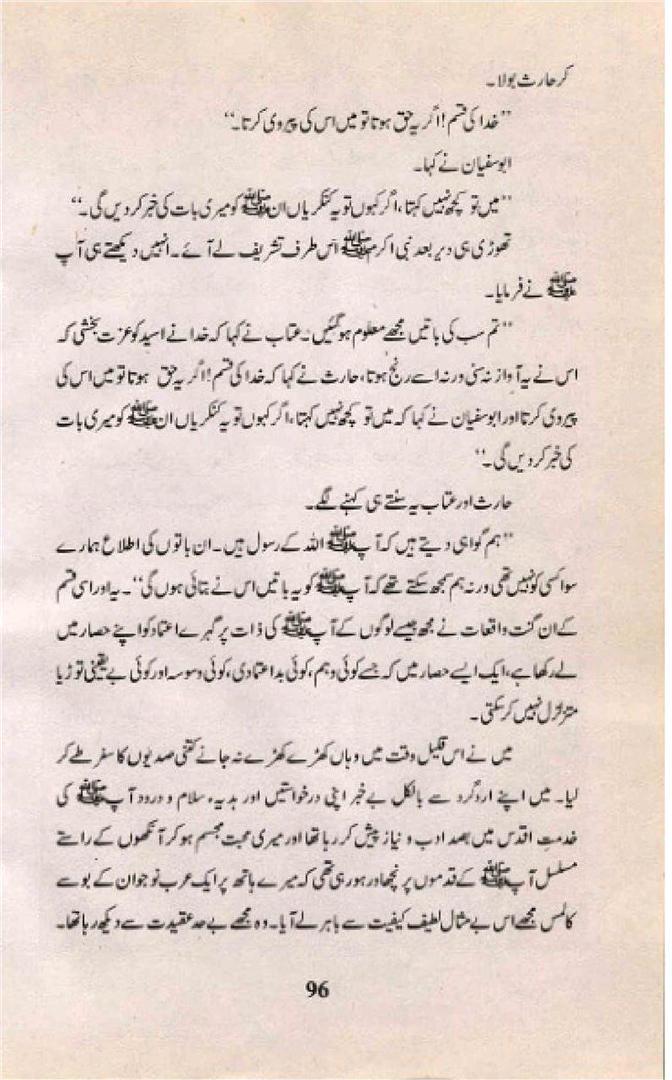 کر حارث بولا۔
’’خدا کی قسم! اگر یہ حق ہوتا تو میں اس کی پیروی کرتا۔‘‘
ابوسفیان نے کہا۔
’’میں تو کچھ نہیں کہتا، اگر کہوں تو یہ کنکریاں ان ﷺ کو میری بات کی خبر کر دیں گی۔‘‘
تھوڑی ہی دیر بعد نبی اکرم ﷺ اس طرف تشریف لے آئے۔ انہیں دیکھتے ہی آپ
ﷺ نے فرمایا۔
’’تم سب کی باتیں مجھے معلوم ہو گئیں۔ عتاب نے کہا کہ خدا نے اسید کو عزت بخشی کہ
اس نے یہ آواز نہ سنی ورنہ اسے رنج ہوتا، حارث نے کہا کہ خدا کی قسم! اگر یہ حق ہوتا تو میں اس کی
پیروی کرتا اور ابوسفیان نے کہا کہ میں تو کچھ نہیں کہتا، اگر کہوں تو یہ کنکریاں ان ﷺ کو میری بات
کی خبر کر دیں گی۔‘‘
حارث اور عتاب یہ سنتے ہی کہنے لگے۔
’’ہم گواہی دیتے ہیں کہ آپ ﷺ اللہ کے رسول ہیں۔ ان باتوں کی اطلاع ہمارے
سوا کسی کو نہیں تھی ورنہ ہم سمجھ سکتے تھے کہ آپ ﷺ کو یہ باتیں اس نے بتائی ہوں گی‘‘۔ یہ اور اسی قسم
کے ان گنت واقعات نے مجھ جیسے لوگوں کے آپ ﷺ کی ذات پر گہرے اعتماد کو اپنے حصار میں
لے رکھا ہے، ایک ایسے حصار میں کہ جسے کوئی وہم، کوئی بداعتمادی، کوئی وسوسہ اور کوئی بے یقینی توڑ یا
متزلزل نہیں کر سکتی۔
میں نے اس قلیل وقت میں وہاں کھڑے کھڑے نہ جانے کتنی صدیوں کا سفر طے کر
لیا۔ میں اپنے اردگرد سے بالکل بے خبر اپنی درخواستیں اور ہدیہء سلام و درود آپ ﷺ کی
خدمتِ اقدس میں بصد ادب و نیاز پیش کر رہا تھا اور میری محبت مجسم ہو کر آنکھوں کے راستے
مسلسل آپ ﷺ کے قدموں پر نچھاور ہو رہی تھی کہ میرے ہاتھ پر ایک عرب نوجوان کے بوسے
کا لمس مجھے اس بے مثال لطیف کیفیت سے باہر لے آیا۔ وہ مجھے بے حد عقیدت سے دیکھ رہا تھا۔
96